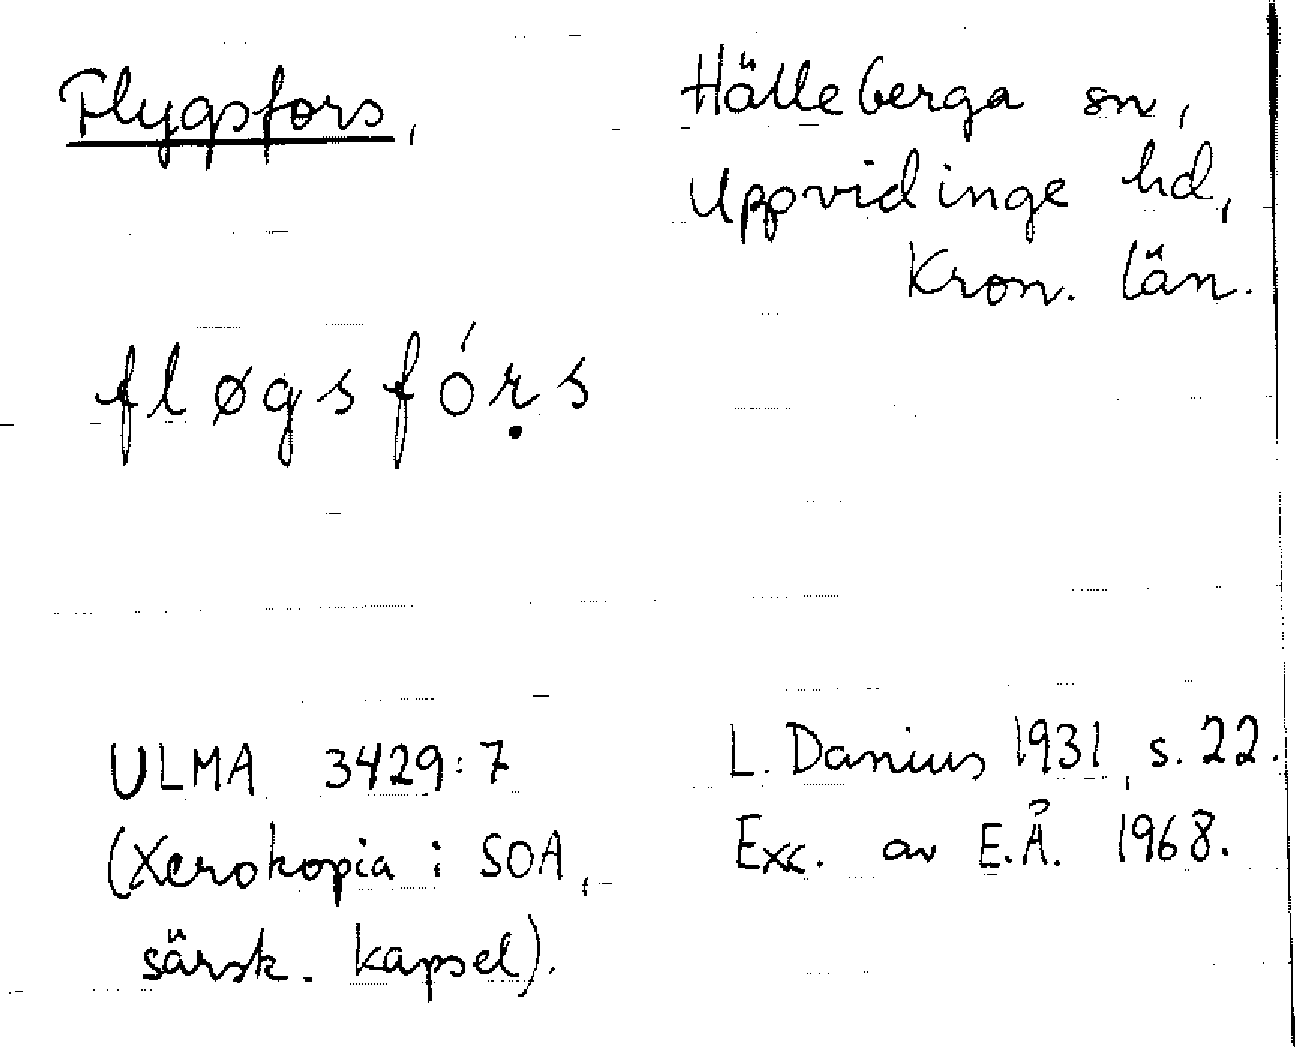 Flygsfors,
Hälleberga sn,
Uppvidinge hd,
Kron. län.
fløgsfórṣ s
ULMA 3429:7
(Xerokopia i SOA,
särsk. kapsel).
L. Danius 1931, s. 22.
Exc. av E.Å. 1968.